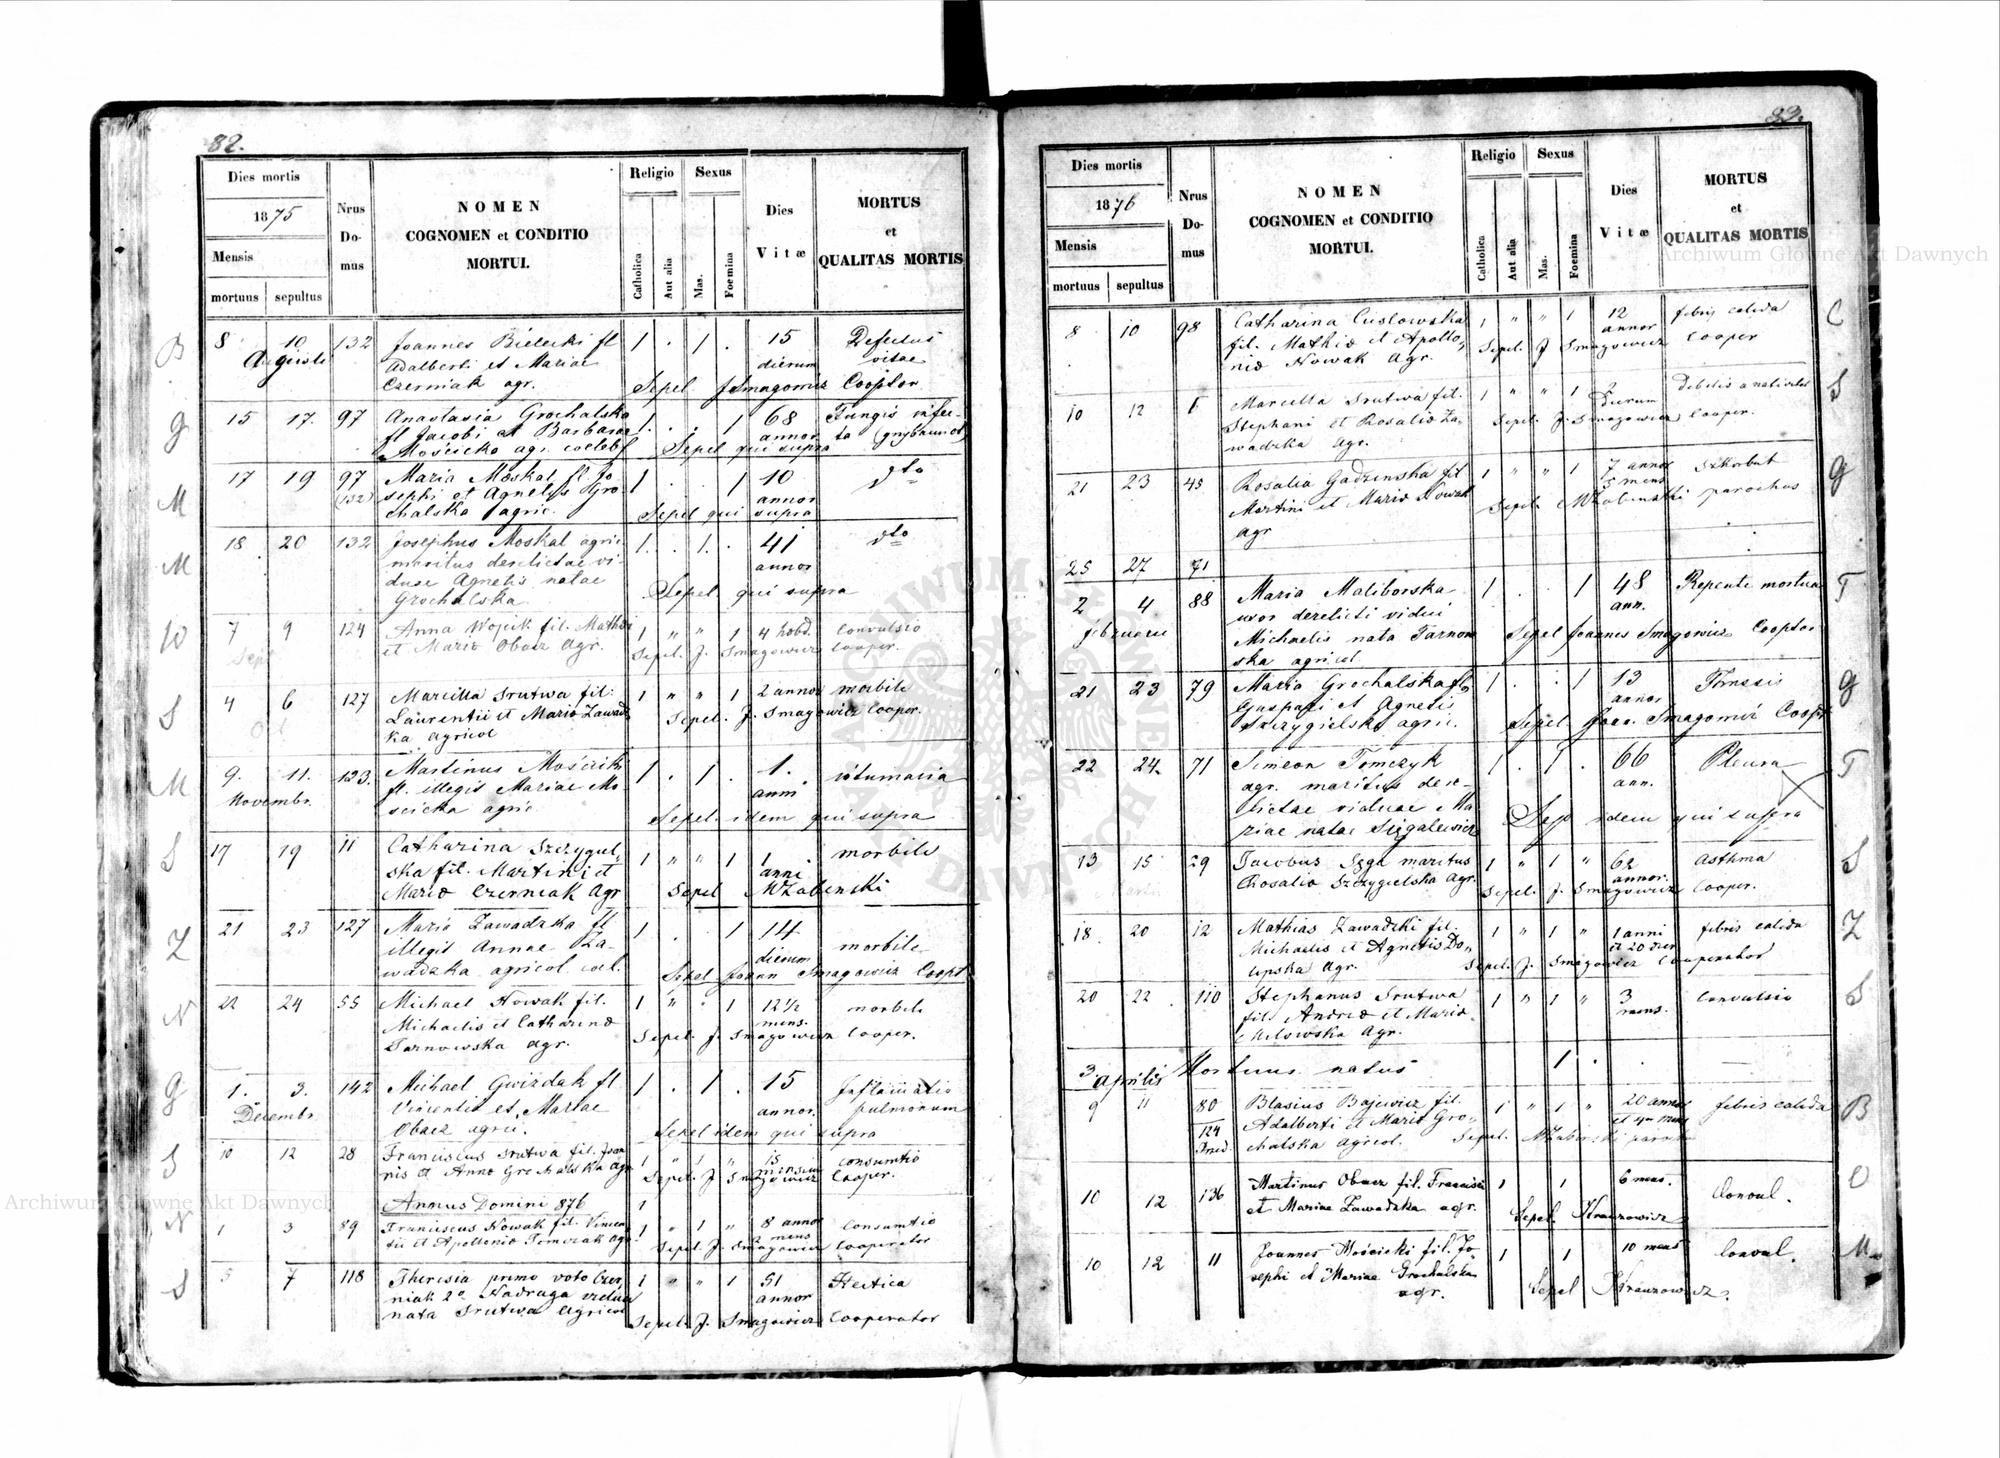 82.
Dies mortis
1875
Mensis
mortuus sepultus
Nrus Do- mus
NOMEN
COGNOMEN et CONDITIO
MORTUI.
Religio
Catholica
Aut alia
Sexus
Mas.
Foemina
Dies
Vitæ
MORTUS
et
QUALITAS MORTIS
B 8 10 132 Joannes Bielecki fl 1 . 1 . 15 Defectus
Augusti Adalberti et Mariae dierum vitae
Czerniak agr. Sepel J Smagowicz Cooptor
G 15 17. 97 Anastasia Grochalska 1 . . 1 68
fl Jacobi et Barbarae annor
Mościcka agr. coelebs Sepel qui supra
M 17 19 97 Maria Moskal fl Jo 1 . . 1 10 dto
(132) sephi et Agnetis Gro annor
chalska agric. Sepel qui supra
M 18 20 132 Josephus Moskal agric 1. . 1. . 41 dto
maritus derelictae vi- annor
duae Agnetis natae
Grochalska Sepel qui supra
W 7 9 124 Anna Wojcik fil. Mathiæ 1 " " 1 4 hebd. Convulsio
Sept et Mariæ Obacz Agr. Sepel. J. Smagowicz Cooper.
S 4 6 127 Marcella Srutwa fil. 1 " " 1 2 annor morbili
Laurentii et Mariæ Zawadz Sepel. J. Smagowicz Cooper.
ka agricol
M 9. 11. 123. Martinus Mościcki 1 . 1 . 1.
Novembr. fl. illegit Mariae Mo anni
scicka agric Sepel. idem qui supra
S 17 19 11 Catharina Szczygiel- 1 " " 1 1 morbili
ska fil. Martini et anni
Mariæ Czerniak Agr Sepel MZabinski
Z 21 23 127 Maria Zawadzka fl 1 . . 1 14
illegit Annae Za- dierum morbili
wadzka agricol. coel. Sepel Joann Smagowicz Coopt
N 22 24 55 Michael Nowak fil. 1 " . 1 12½ morbili
Michaelis et Catharinæ mens.
Tarnowska agr. Sepel. J. Smagowicz Cooper.
G 1. 3. 142 Michael Gwizdak fl 1 . 1 . 15 Inflamatio
Decembr Vincentii et Mariae annor. pulmonum
Obacz agric. Sepel idem qui supra
S 10 12 28 Franciscus Srutwa fil. Joan 1 " 1 " 15 consumtio
nis et Annæ Grochalska Agr Sepel. J Smagowicz Cooper.
Annus Domini 876 1
N 1 3 89 Franciscus Nowak fil. Vincen 1 " 1 " 8 annor Consumtio
tii et Apolloniæ Tomczak agr 2 mens
Sepel. J. Smagowicz Cooperator
S 5 7 118 Theresia primo voto Czer 1 " " 1 51 Hectica
niak 2o Nadraga vidua annor
nata Srutwa agricol Sepel. J. Smagowicz Cooperator
83.
Dies mortis
1876
Mensis
mortuus sepultus
Nrus Do- mus
NOMEN
COGNOMEN et CONDITIO
MORTUI.
Religio
Catholica
Aut alia
Sexus
Mas.
Foemina
Dies
Vitæ
MORTUS
et
QUALITAS MORTIS
8 10 98 Catharina Cuslowska 1 " " 1 12 febris calida C
fil. Mathiæ et Apollo- annor
niæ Nowak Agr. Sepel. J Smagowicz Cooper
10 12 Marcella Srutwa fil. 1 " " 1 2 Debilis a nativitat S
Stephani et Rosaliæ Za- dierum
wadzka Agr. Sepel. J. Smagowicz Cooper.
21 23 45 Rosalia Gadzinska fil 1 " " 1 7 annor Szkorbut G
Martini et Mariæ Nowak 5 mens
agr Sepel. MZabinski parochus
25 27 71
2 4 88 Maria Maliborska 1 . . 1 48 Repente mortua T
februarii uxor derelicti vidui ann.
Michaelis nata Tarnow Sepel Joannes Smagowicz Cooptor
ska agricol.
21 23 79 Maria Grochalska fl 1 . . 1 13 G
Gaspari et Agnetis annor
Szczygielska agric. Sepel. Joan. Smagowicz Coopt
22 24. 71 Simeon Tomczyk 1 . 1 . 66 Pleura T
agr. maritus dere- ann.
lictae viduae Ma
riae natae Sepel idem qui supra
13 15 29 Jacobus Sęga maritus 1 " 1 " 62 Asthma S
Rosaliæ Szczygielska Agr. annor.
Sepel. J. Smagowicz Cooper.
18. 20 12 Mathias Zawadzki fil. 1 " 1 " 1 anni febris calida Z
Michaelis et Agnetis Do- et 20 dier
lipska Agr. Sepel. J. Smagowicz Cooperator
20 22 110 Stephanus Srutwa 1 " 1 " 3 Convulsio S
fil. Andreæ et Mariæ mens.
Milowska Agr.
3. Aprilis Mortuus natus 1
9 11 80 Blasius Bajewicz fil. 1 " 1 " 20 annor febris calida B
124 Adalberti et Mariæ Gro-
chalska Agricol. Sepel. MZabinski parochus
10 12 136 Martinus Obacz fil. Francisci 1 1 6 mens. Convul. O
et Mariae Zawadzka agr. Sepel. Krauzowicz
10 12 11 Joannes Mościcki fil. Jo- 1 1 10 mens Convul. M
sephi et Mariae Grochalska
agr. Sepel Krauzowicz.
Archiwum Główne Akt Dawnych
Archiwum Główne Akt Dawnych
ARCHIWUM GŁÓWNE AKT DAWNYCH